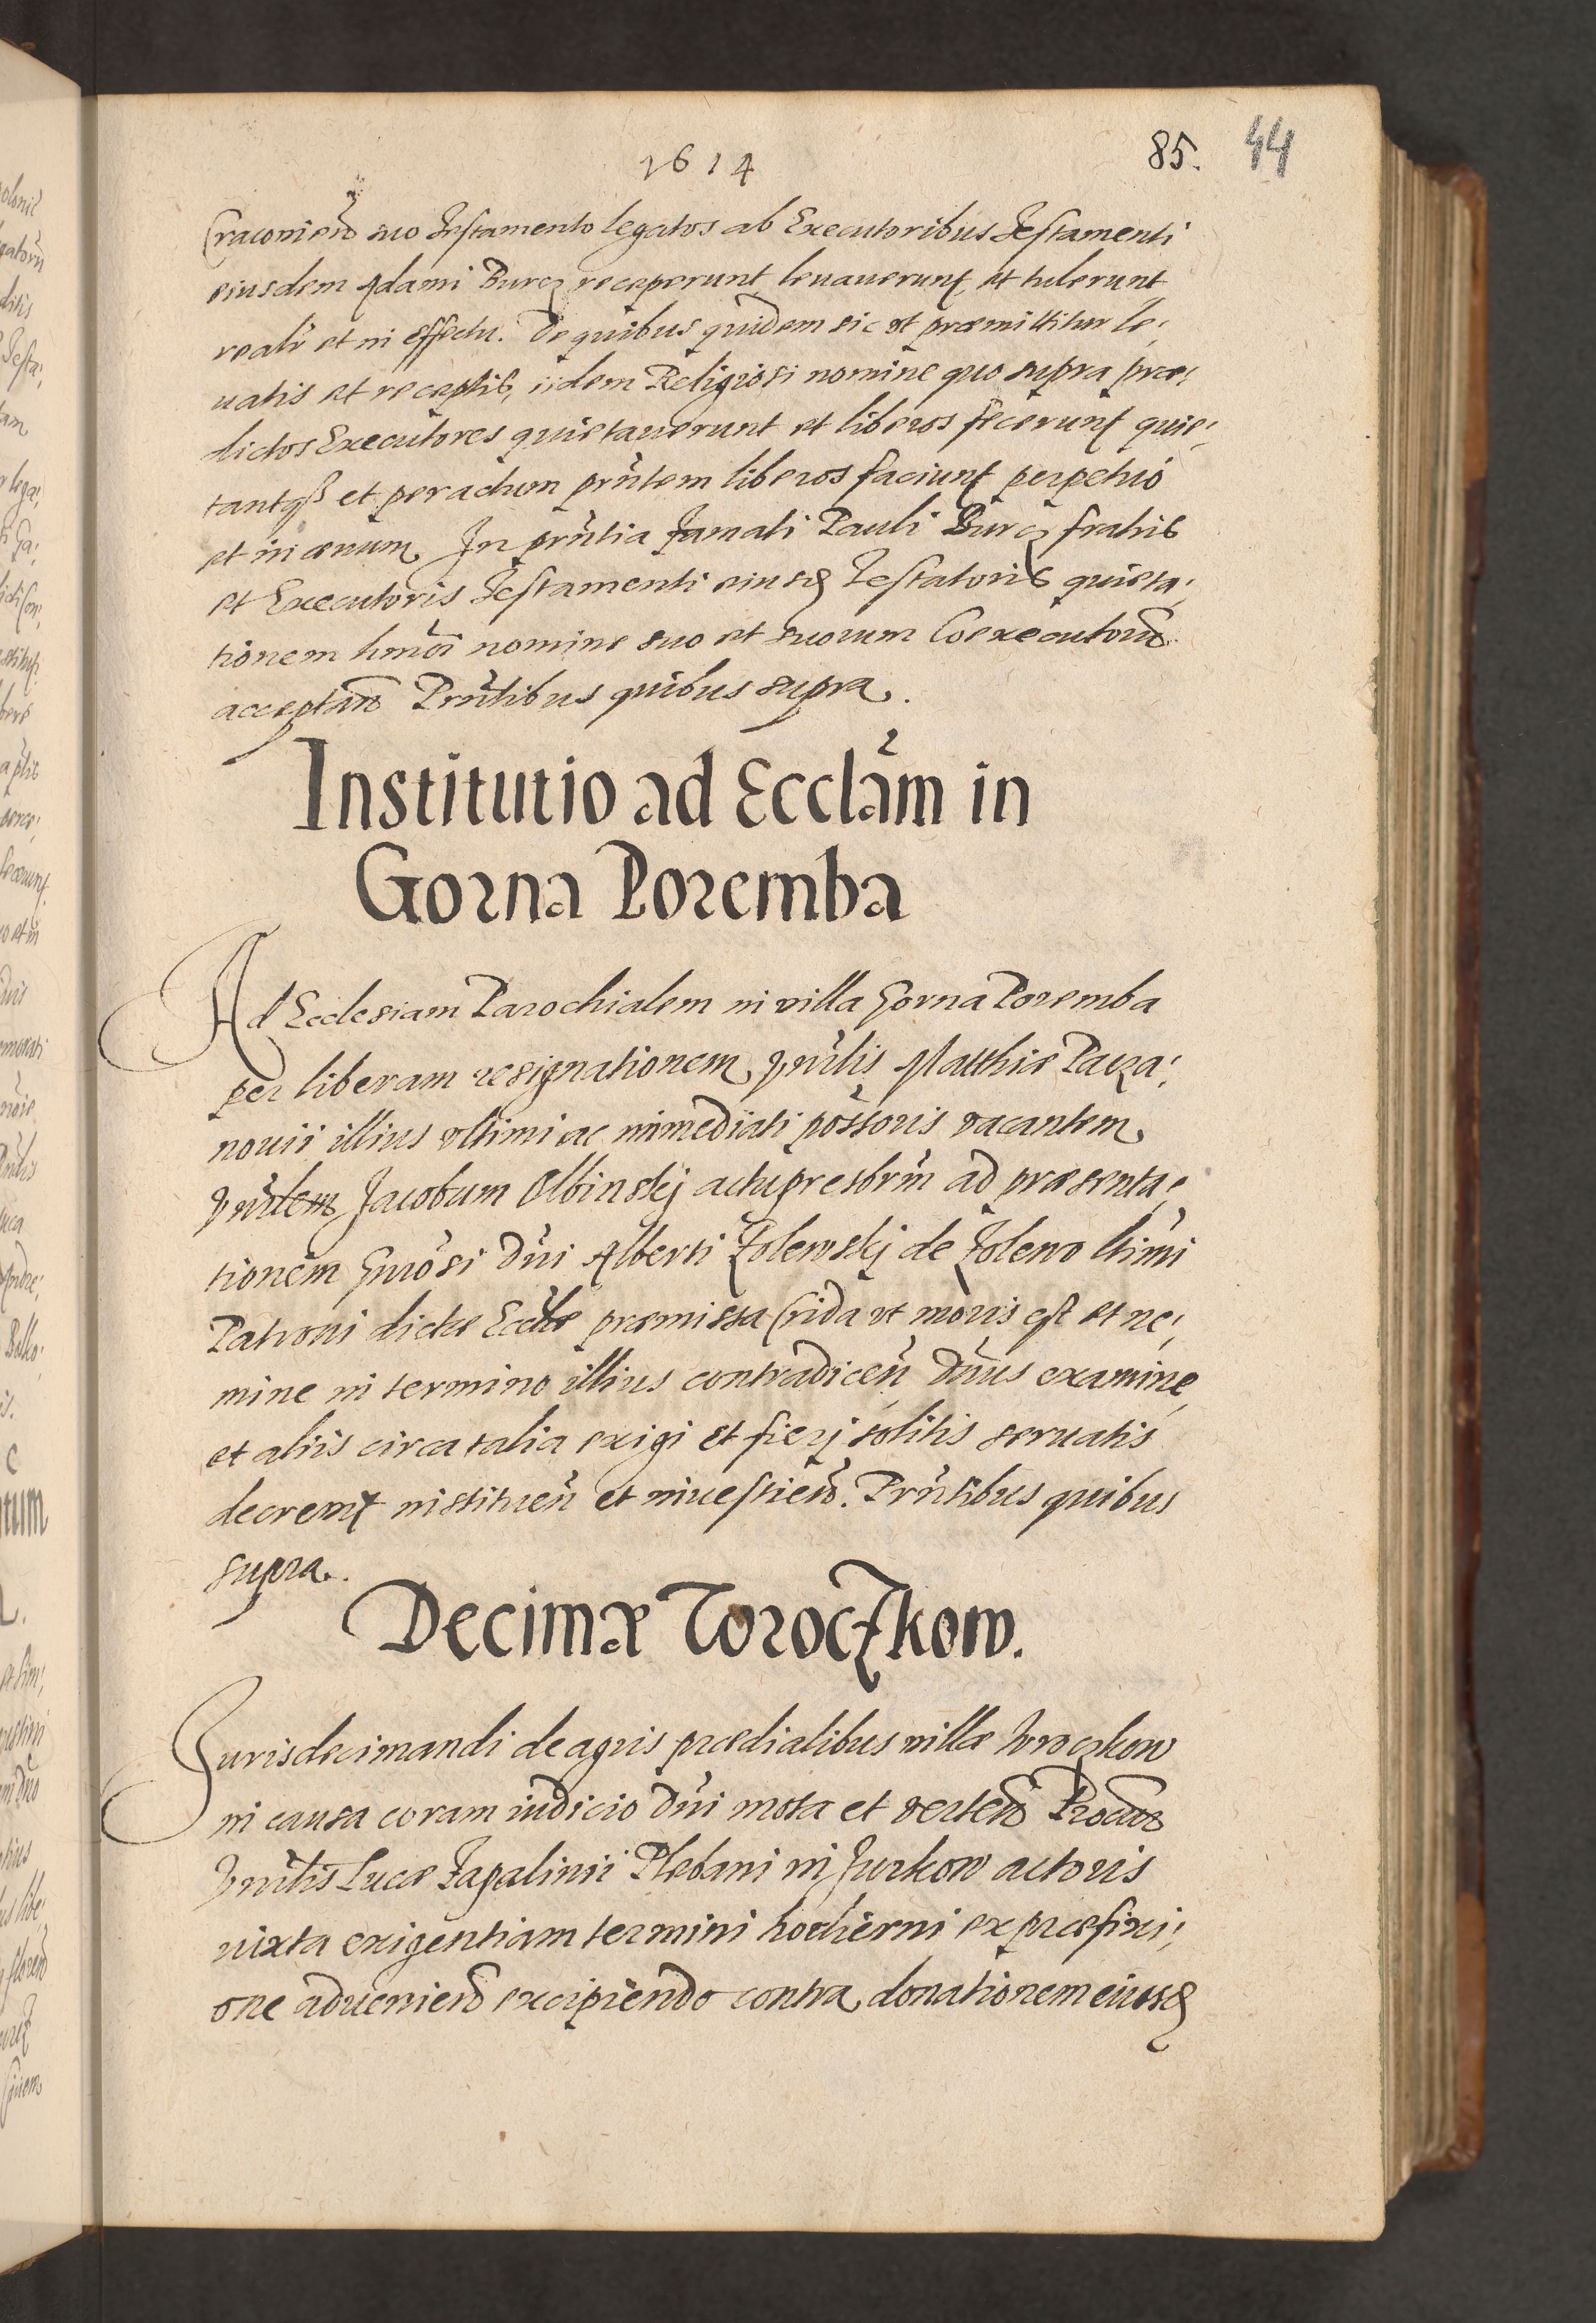 1614
85. 44
Cracovien̄ suo Testamento legatos ab Executoribus Testamenti
eiusdem Adami Burcz receperunt leuauerunt et tulerunt
realr̄ et in effectu. De quibus quidem sic ut præmittitur le,
uatis et receptis, iidem Religiosi nomine quo supra præ,
dictos Executores quietauerunt et liberos fecerunt quie,
tantqȝ et per actum prn̄tem liberos faciunt perpetuò
et in æuum. In prn̄tia Famati Pauli Burcz fratris
et Executoris Testamenti eiusd Testatoris quieta,
tionem hmōi nomine suo et suorum Coexecutorū
acceptan̄ Prn̄tibus quibus supra.
Institutio ad Eccłam in
Gorna Poremba
Ad Ecclesiam Parochialem in villa Gorna Poremba
per liberam resignationem Vn̄lis Matthiæ Pacza,
nouii illius vltimi ac immediati poss̄oris vacantem
Vn̄lem Jacobum Olbinskj actu presbrm̄ ad præsenta,
tionem Gnrōsi Dn̄i Alberti Zolewskj de Zolewo lt̄imi
Patroni dictæ Eccłæ præmissa Crida vt moris est et ne,
mine in termino illius contradicen̄ Dn̄us examine
et aliis circa talia exigi et fierj solitis seruatis
decreuit instituen̄ et inuestien̄. Prn̄tibus quibus
supra.
Decimæ Toroczkow.
Juris decimandi de agris prædialibus villæ Troczkow
in causa coram iudicio Dn̄i mota et verten̄ Procur̄
Vn̄lis Lucæ Zapalinii Plebani in Jurkow actoris
iuxta exigentiam termini hodierni ex præfixi,
one aduenien̄ excipiendo contra donationem eiusd